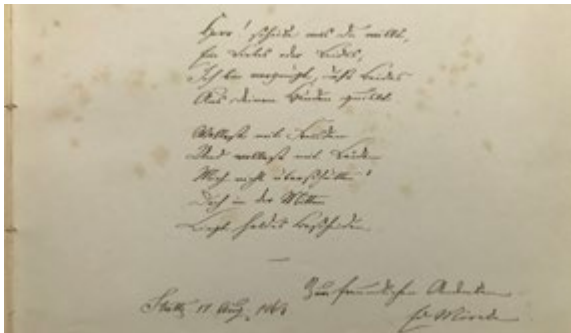 Herr! schicke was du willt,
Ein Liebes oder Leides;
Ich bin vergnügt, daß Beides
Aus deinen Händen quillt.
Wollest mit Freuden
Und wollest mit Leiden
Mich nicht überschütten!
Doch in der Mitten
Liegt holdes Bescheiden.
Stuttg. 11 Aug.
Zum freundlichen Andenken